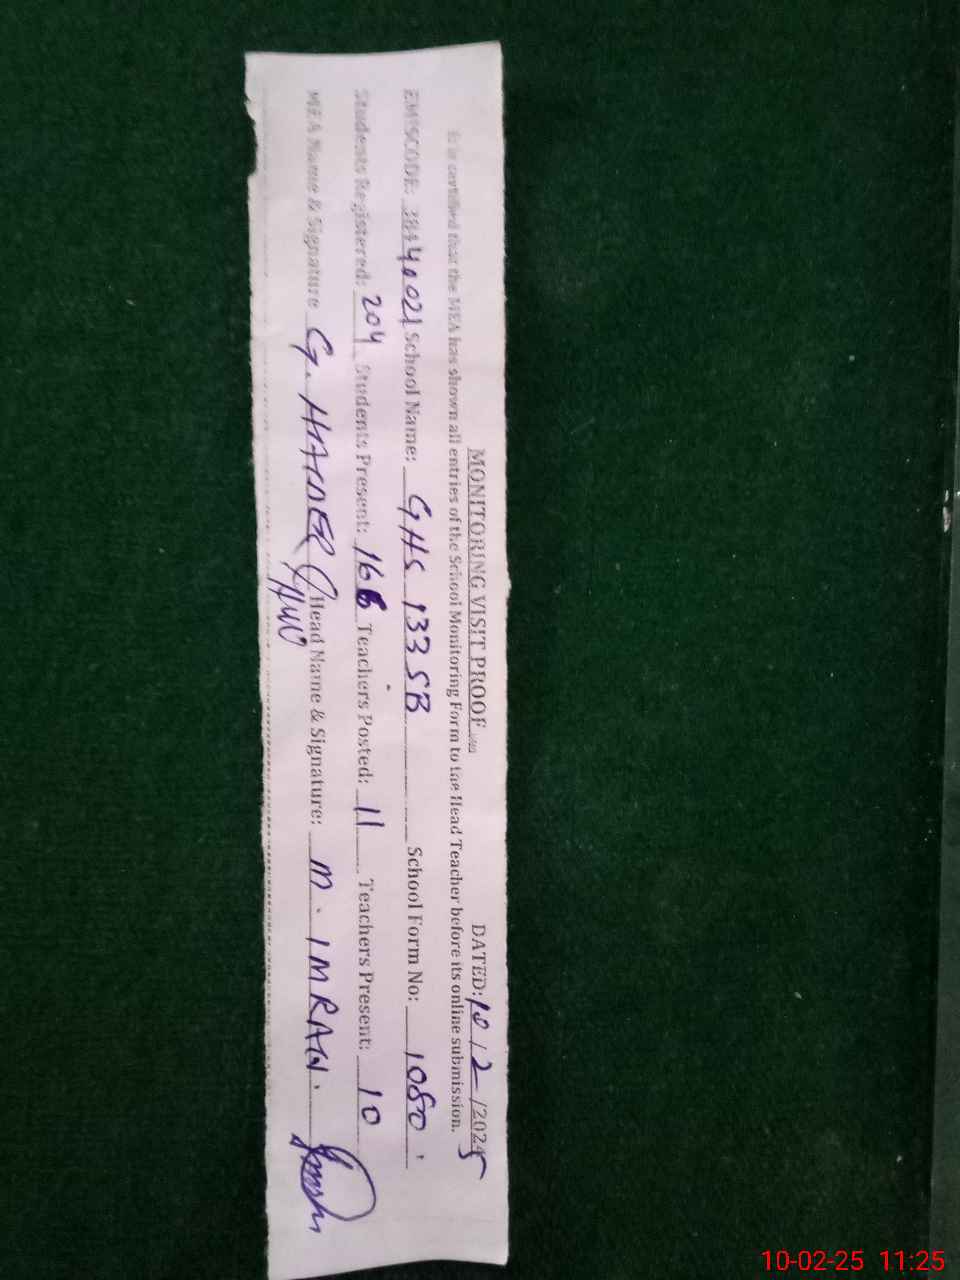 MONITORING VISIT PROOF DATED: 10/2/2025
It is certified that the MEA has shown all entries of the School Monitoring Form to the Head Teacher before its online submission.
EMISCODE: 38440021 School Name: GHS 133 SB School Form No: 1080
Students Registered: 204 Students Present: 166 Teachers Posted: 11 Teachers Present: 10
MEA Name & Signature G. HAIDER Head Name & Signature: M. IMRAN.
10-02-25 11:25